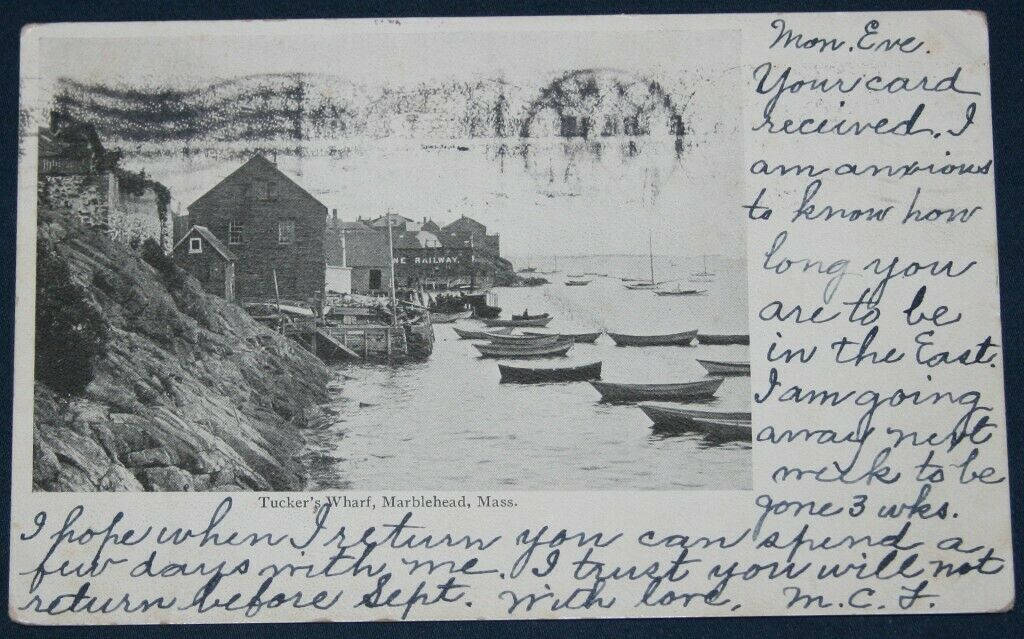 Mon. Eve.
Your card
received. I
am anxious
to know how
long you
are to be
in the East.
I am going
away next
week to be
gone 3 wks.
NE RAILWAY.
Tucker's Wharf, Marblehead, Mass.
I hope when I return you can spend a
few days with me. I trust you will not
return before Sept. With love, M. C. F.